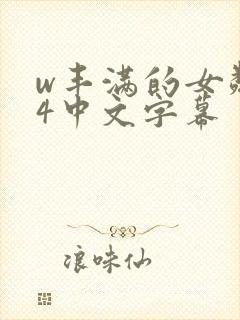 w丰满的女邻
4中文字幕
浪味仙